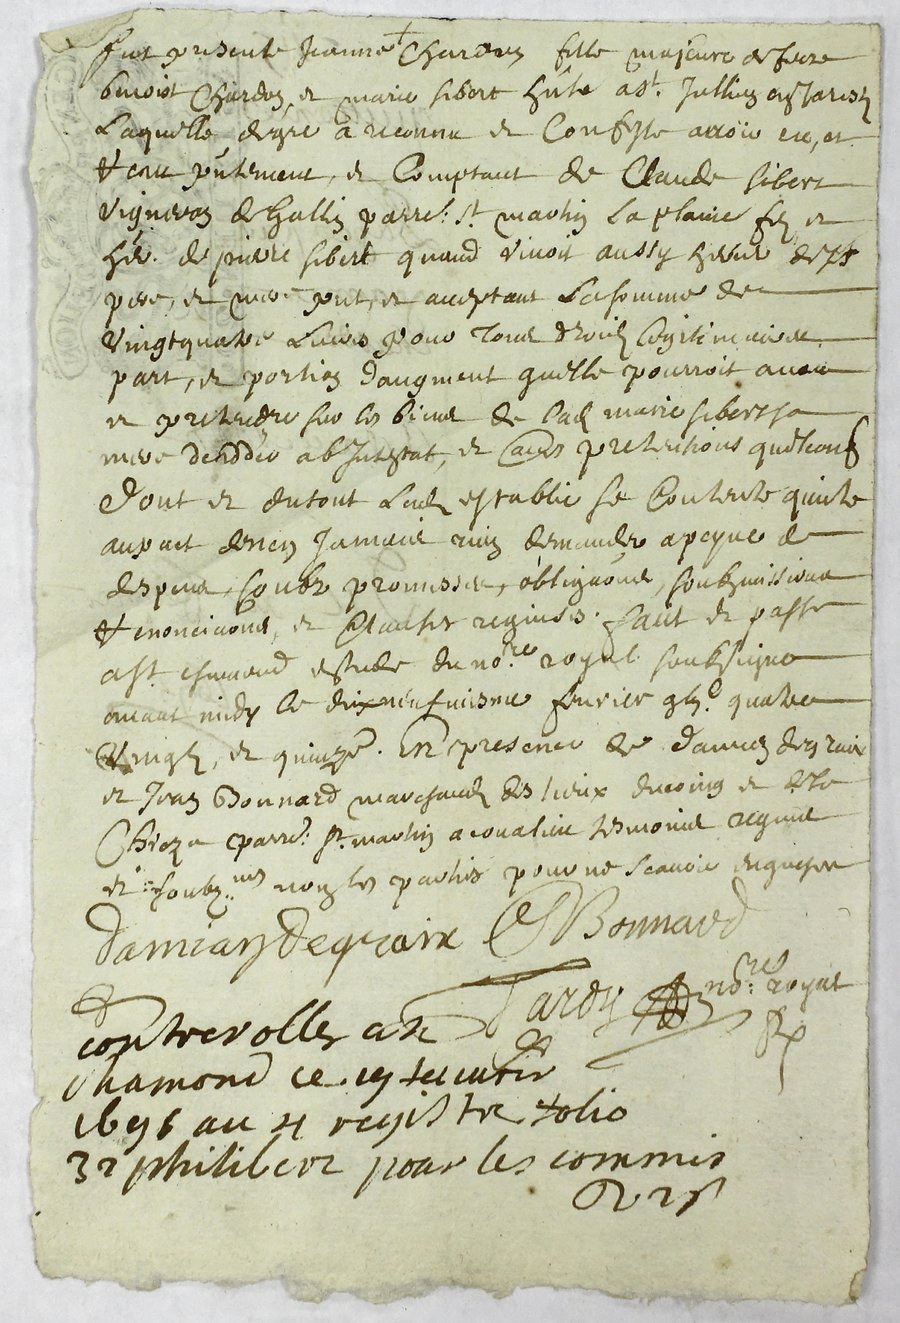 fut presente Jeanne Chardon fille majeure de feuz
benoist Chardon, et marie sibert h̃nte a st. Jullien en Jarestz
Laquelle de gre a reconnu et Confesse auoir eu, et
receu p̃ntement, et Comptant de Claude sibert
vigneron de parre. st. martin La plaine filz et
her. de pierre sibert quand viuoit aussy
pere, et p̃nt, et acceptant La somme de
vingt quatre Liures pour tous droictz Legitimaires
part, et portion daugment quelle pourroit auoir
et pretendre sur les biens de lad. marie sibert sa
mere decedée ab Intestat, et pretentions quelconq
Dont et du tout Lad. establie se Contente quitte
au pact de nen Jamais rien demander a peyne de
despens, soubz promesses, obligãons, soubzmissions
renonciãons, et Clauses requises. faict et passé
a st. chamond estude du no.re royal soubsigné
auant midy le dix neufuiesme feurier gbc. quatre
vingtz, et quinze. En presence de Damien degraix
et Jean Bonnard marchandz des lieux et de la
parre. st. martin acoualieu tesmoins requis
et soubz.nes non les parties pour ne scauoir enquises
Damian Degraix Bonnard
Tardy no.re royal
controrolle a st
chamond ce 19 feurier
1696 au 4 registre folio
32 philibert pour les commis